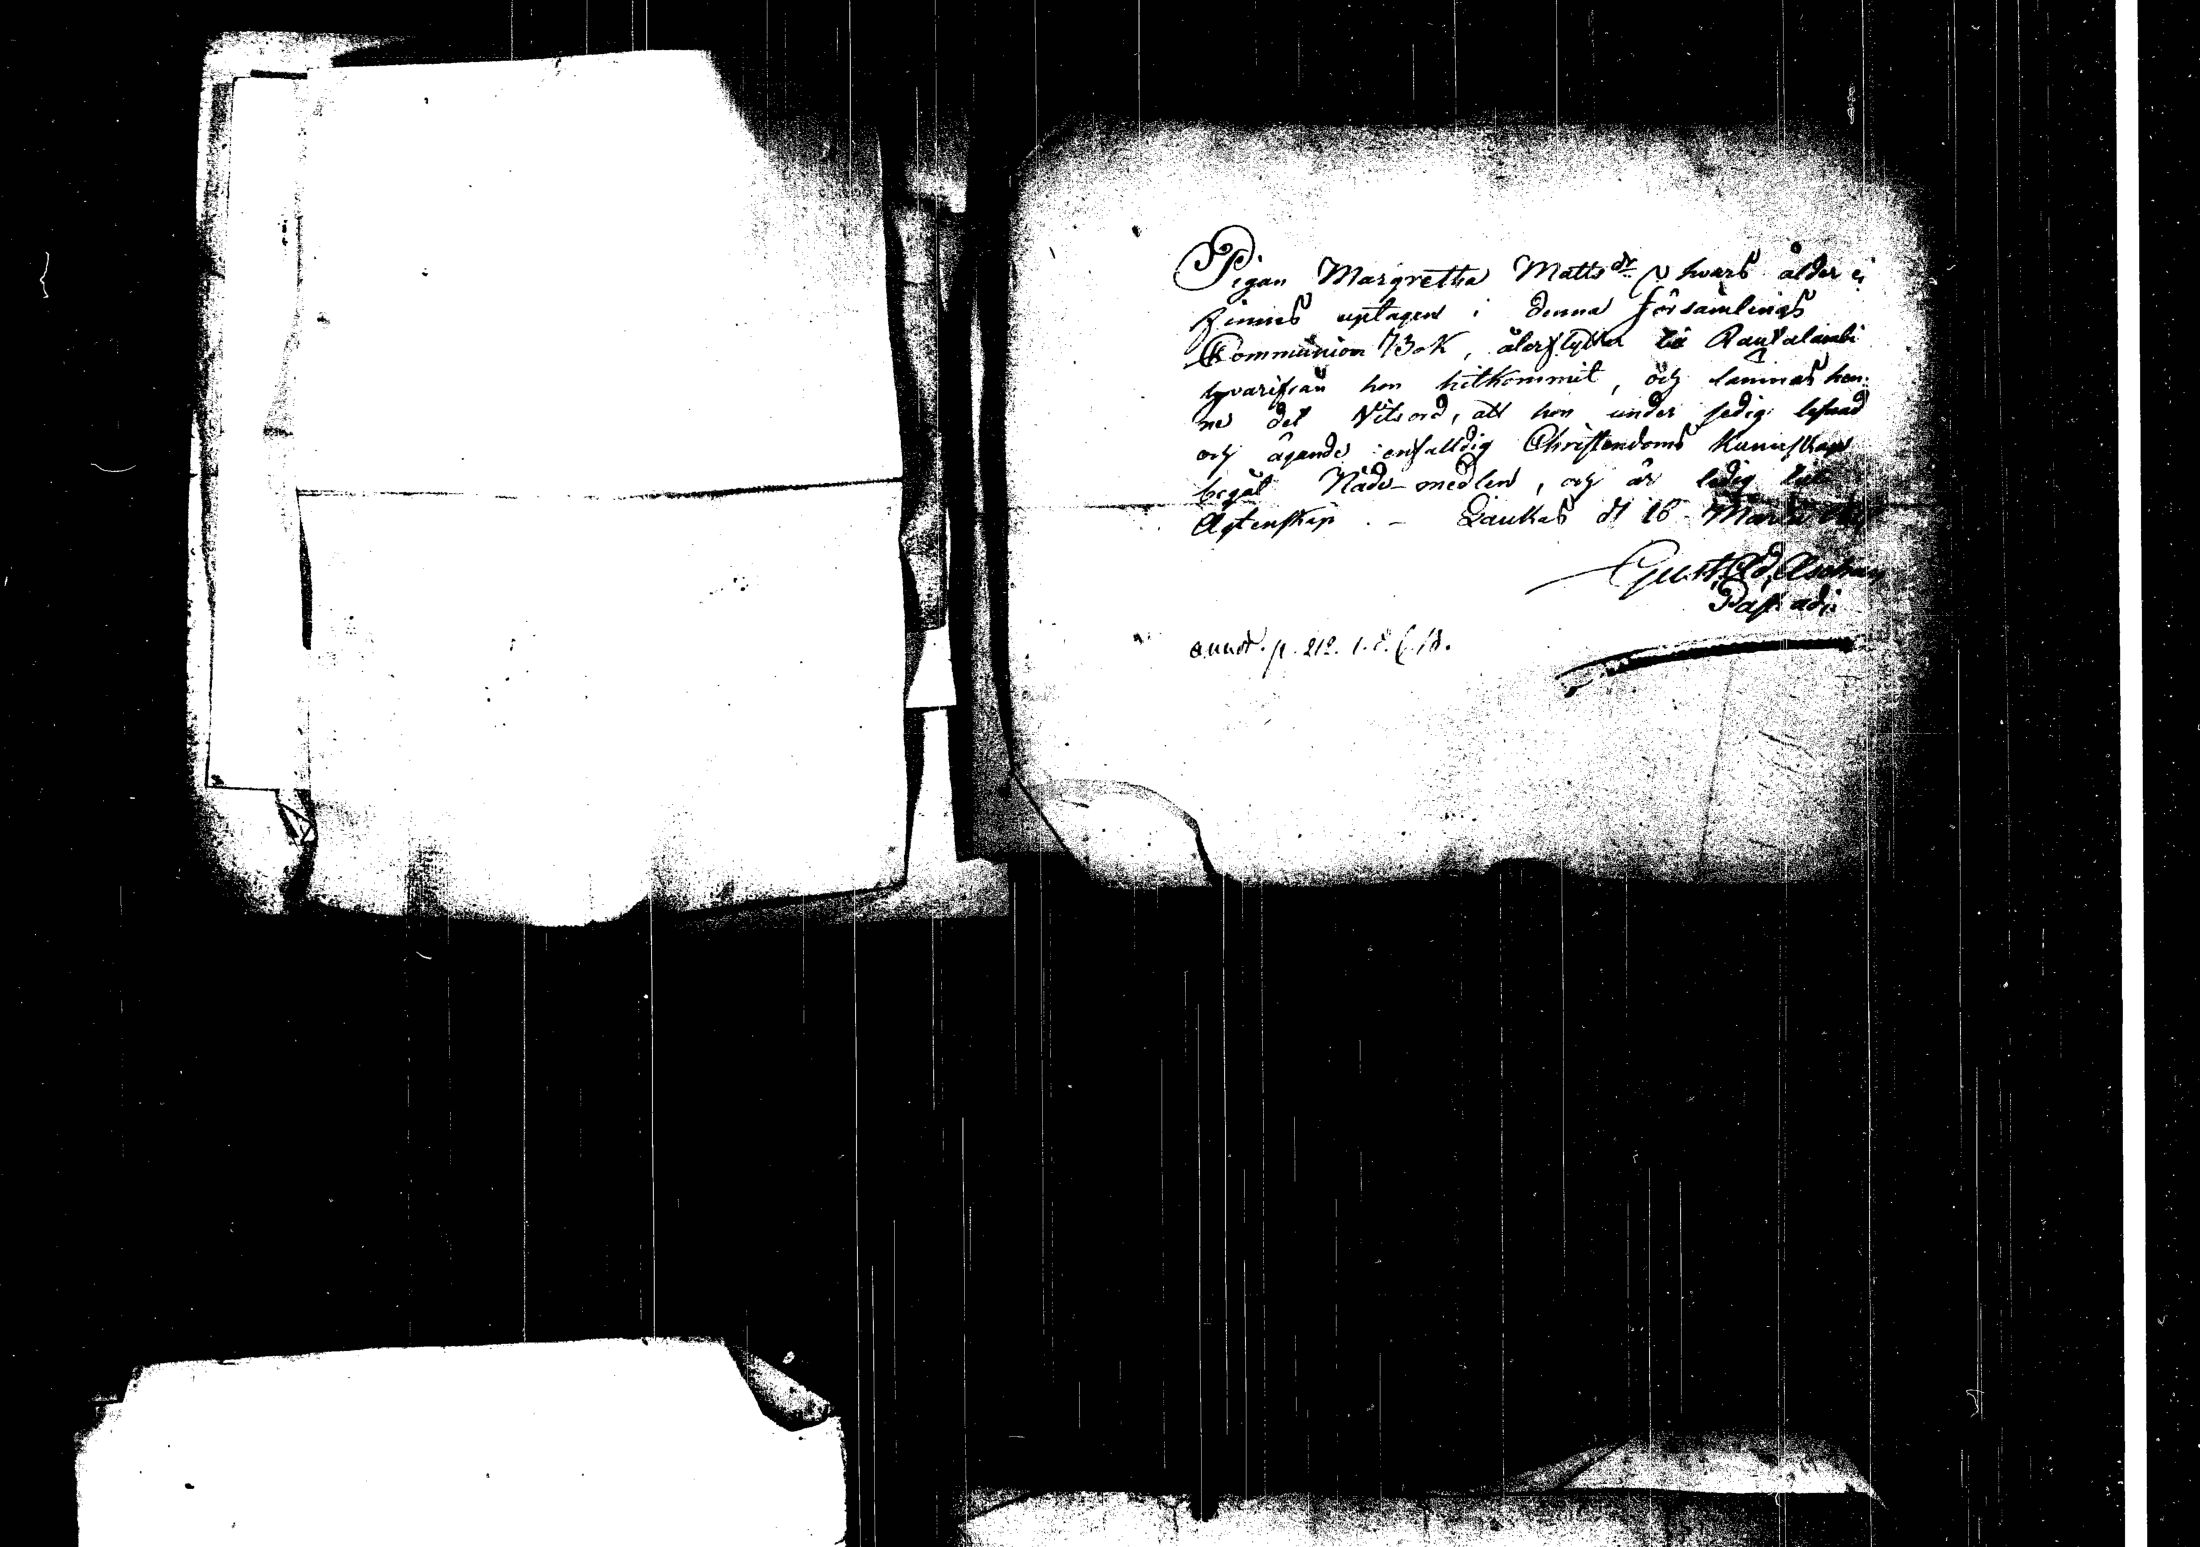 Pigan Margretha Matts dr hvars ålder ej
finnes uptagen i denna församlings
Communion Bok, återflyttar til Rautalambi
hvarifrån hon hitkommit, och lämnas hen-
ne det Vitsord, att hon under sedig lefnad
och ägande enfalldig Christendoms kunskap
begåt Nåde-medlen, och är ledig til
Ägtenskap. - Laukas d 16 Martii
Gust. Ad. Aschan
Past. adj.
annot. p. 212.